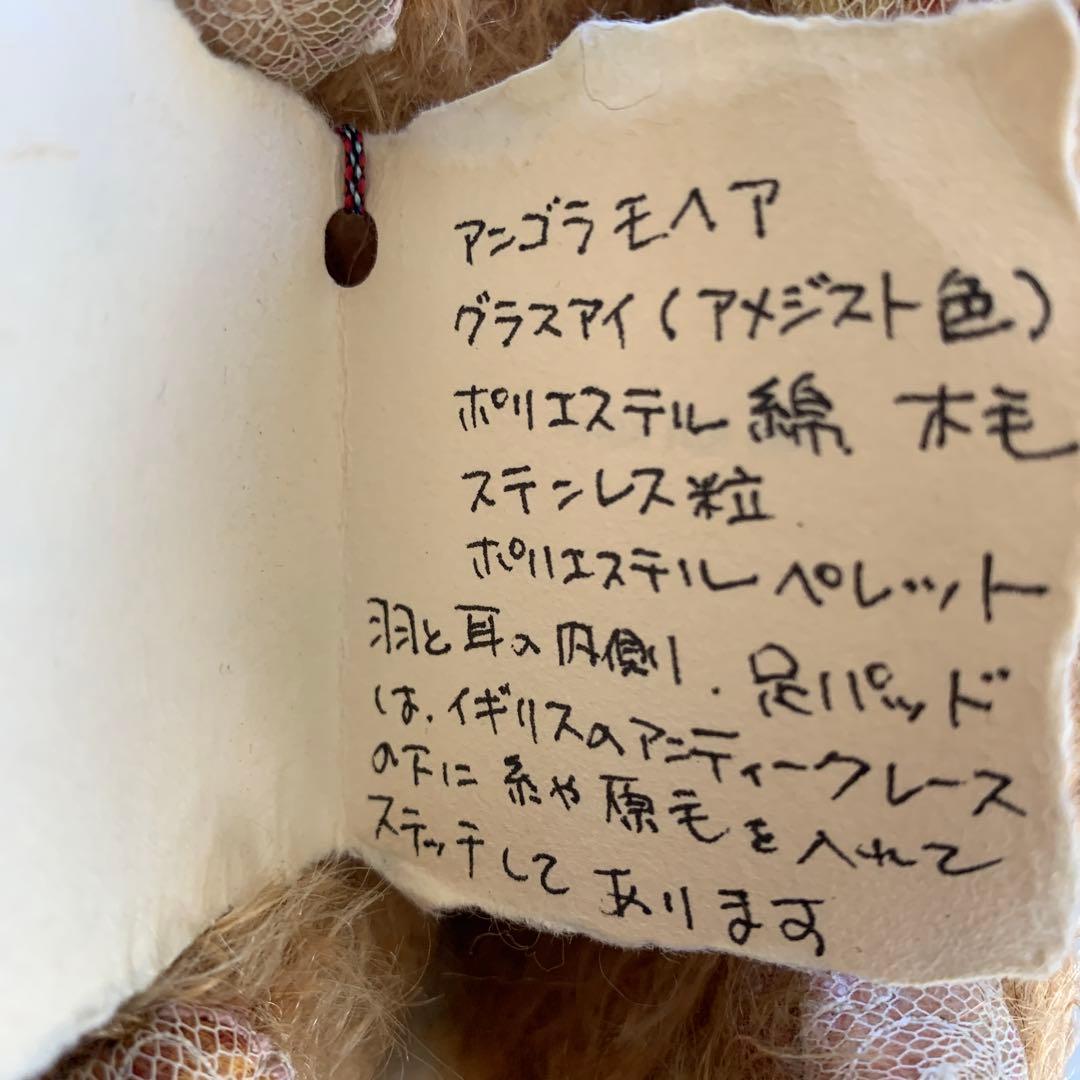 アンゴラモヘア
グラスアイ(アメジスト色)
ポリエステル綿 木毛
ステンレス粒
ポリエステルペレット
羽と耳の内側、足パッド
は、イギリスのアンティークレース
の下に糸や原毛を入れて
ステッチしてあります